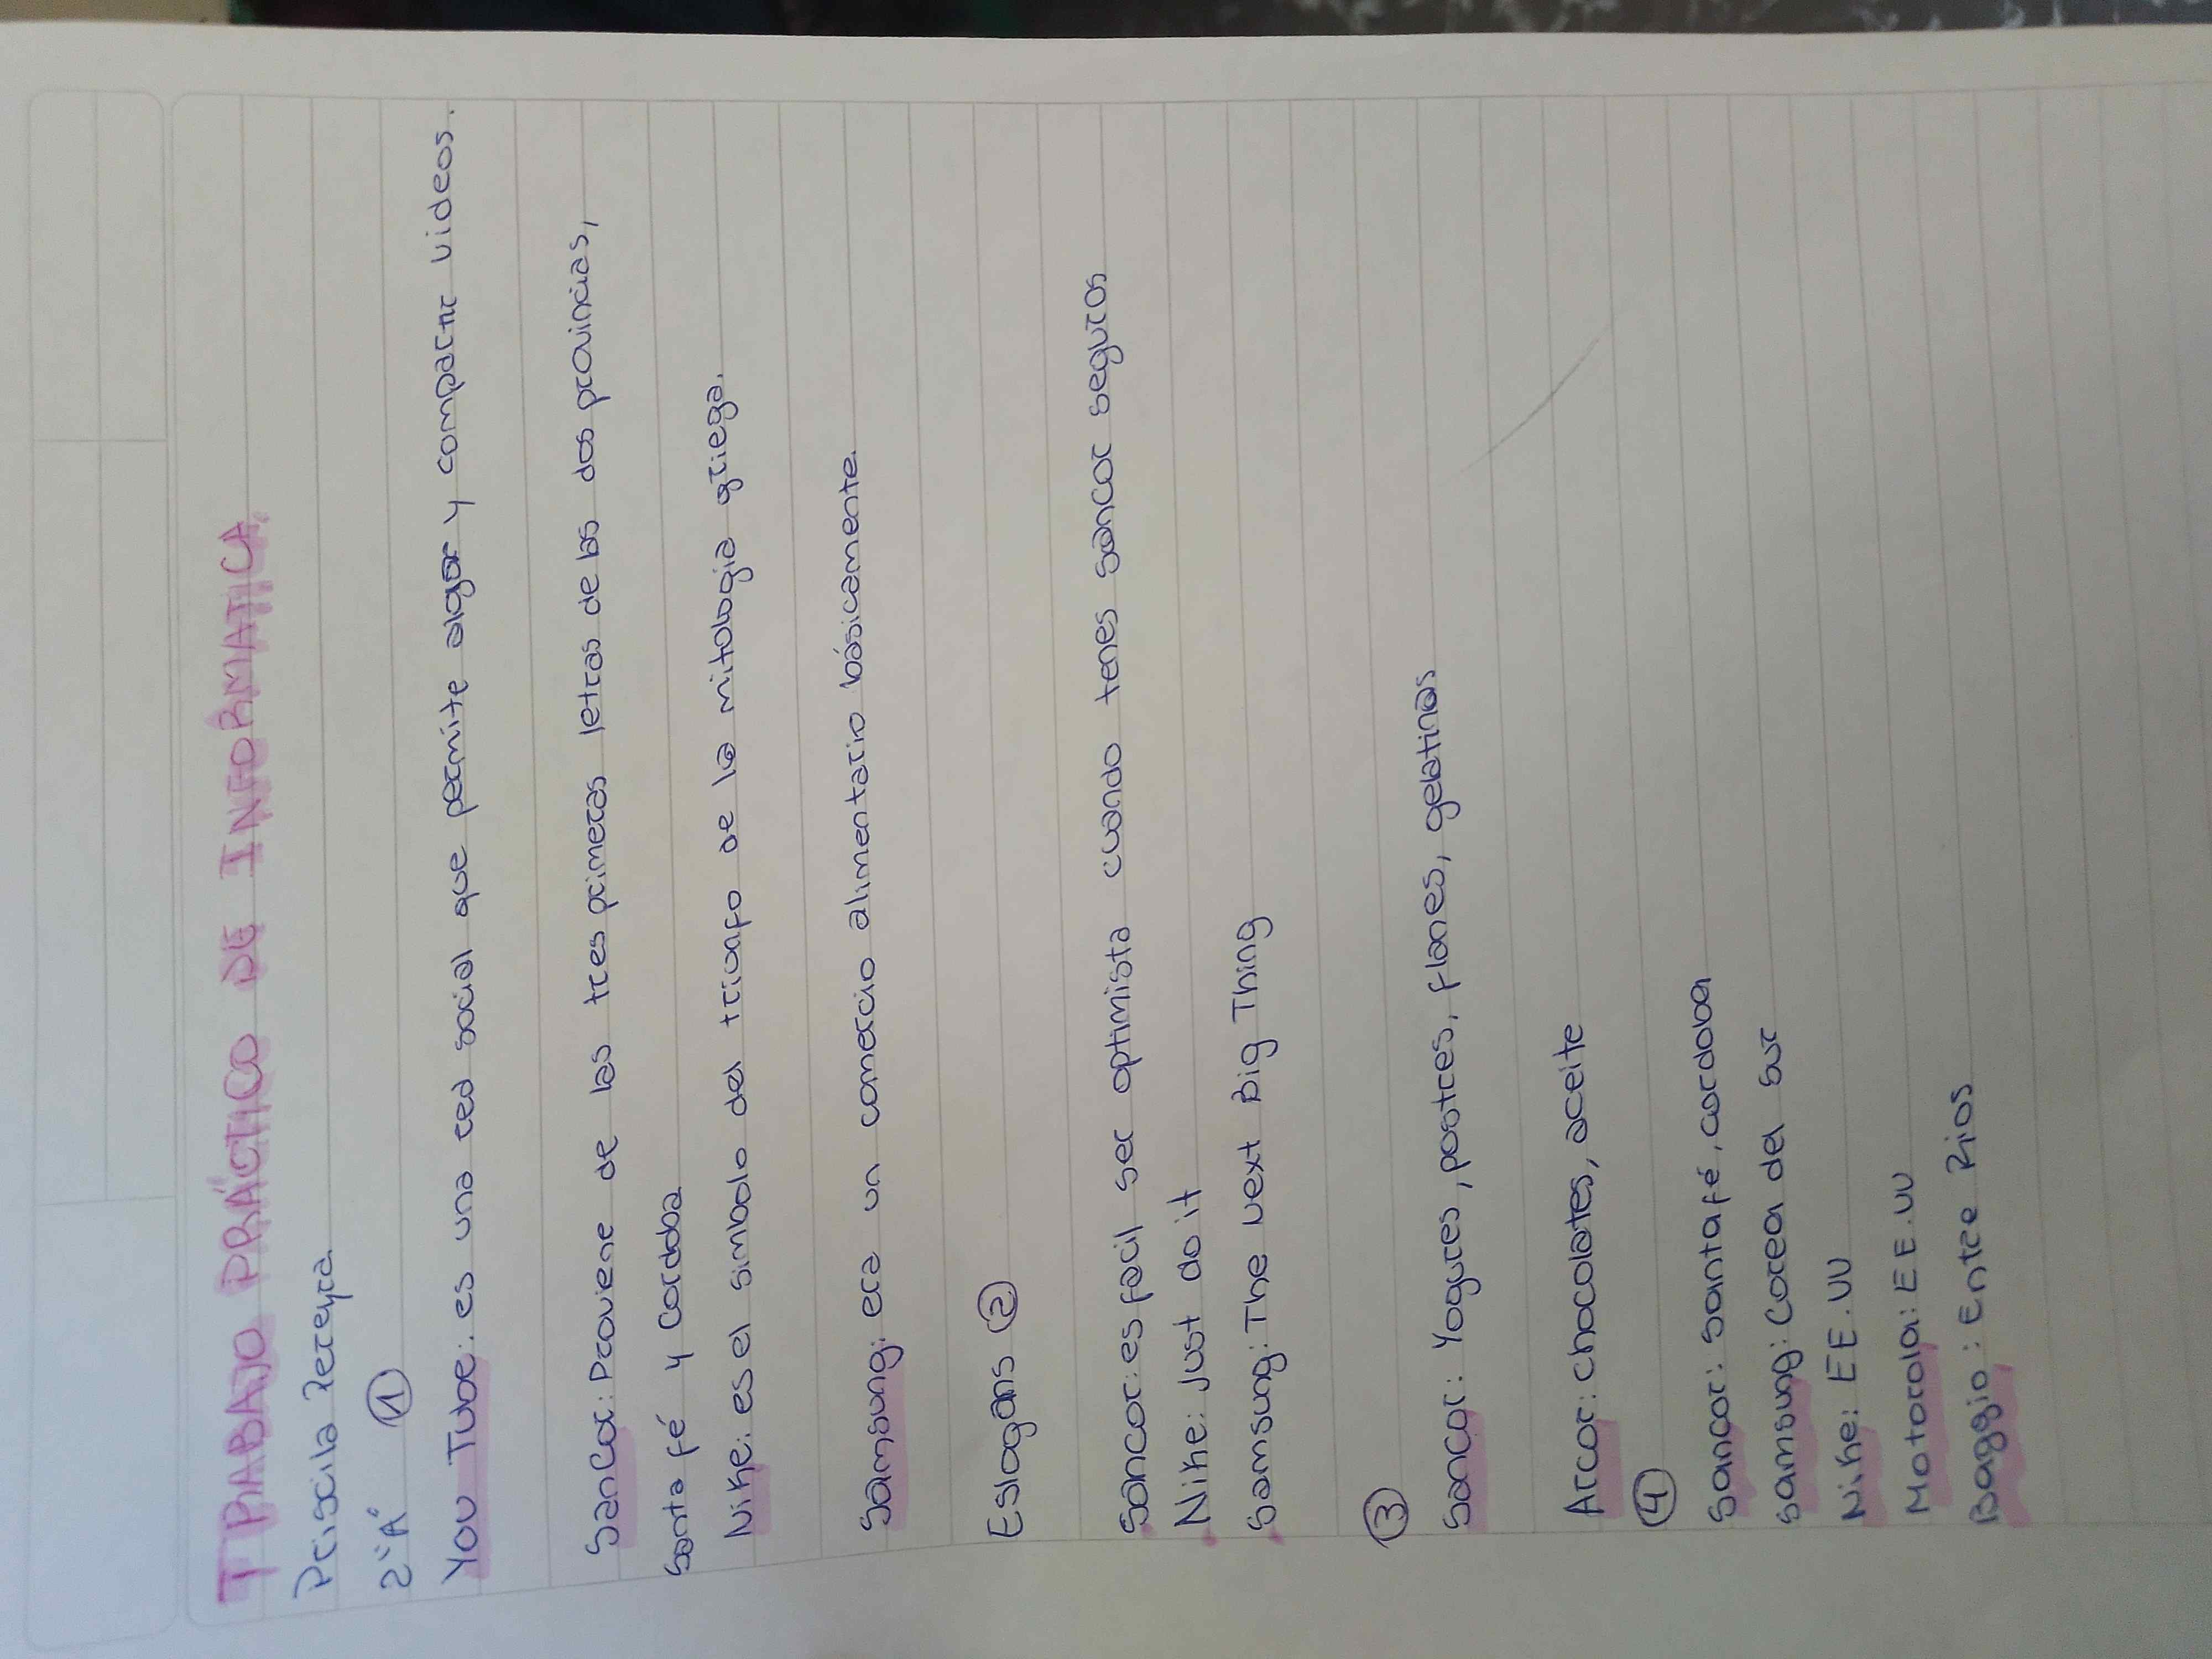 TRABAJO PRÁCTICO DE INFORMATICA.
Priscila Pereyra
2"A" ①
You Tube: es una red social que permite algar y compartir videos.
SanCor: Proviene de las tres primeras letras de las dos provincias,
Santa fé y Cordoba
Nike: es el simbolo del triunfo de la mitologia griega.
Samsung: era un comercio alimentario básicamente.
Eslogans ②
Sancor: es facil ser optimista cuando tenes sancor seguros
Nike: Just do it
Samsung: The next Big Thing
③
Sancor: Yogures, postres, flanes, gelatinas
Arcor: chocolates, aceite
④
Sancor: Santa fé, cordoba
Samsung: Corea del sur
Nike: EE.UU
Motorola: EE.UU
Baggio: Entre Rios